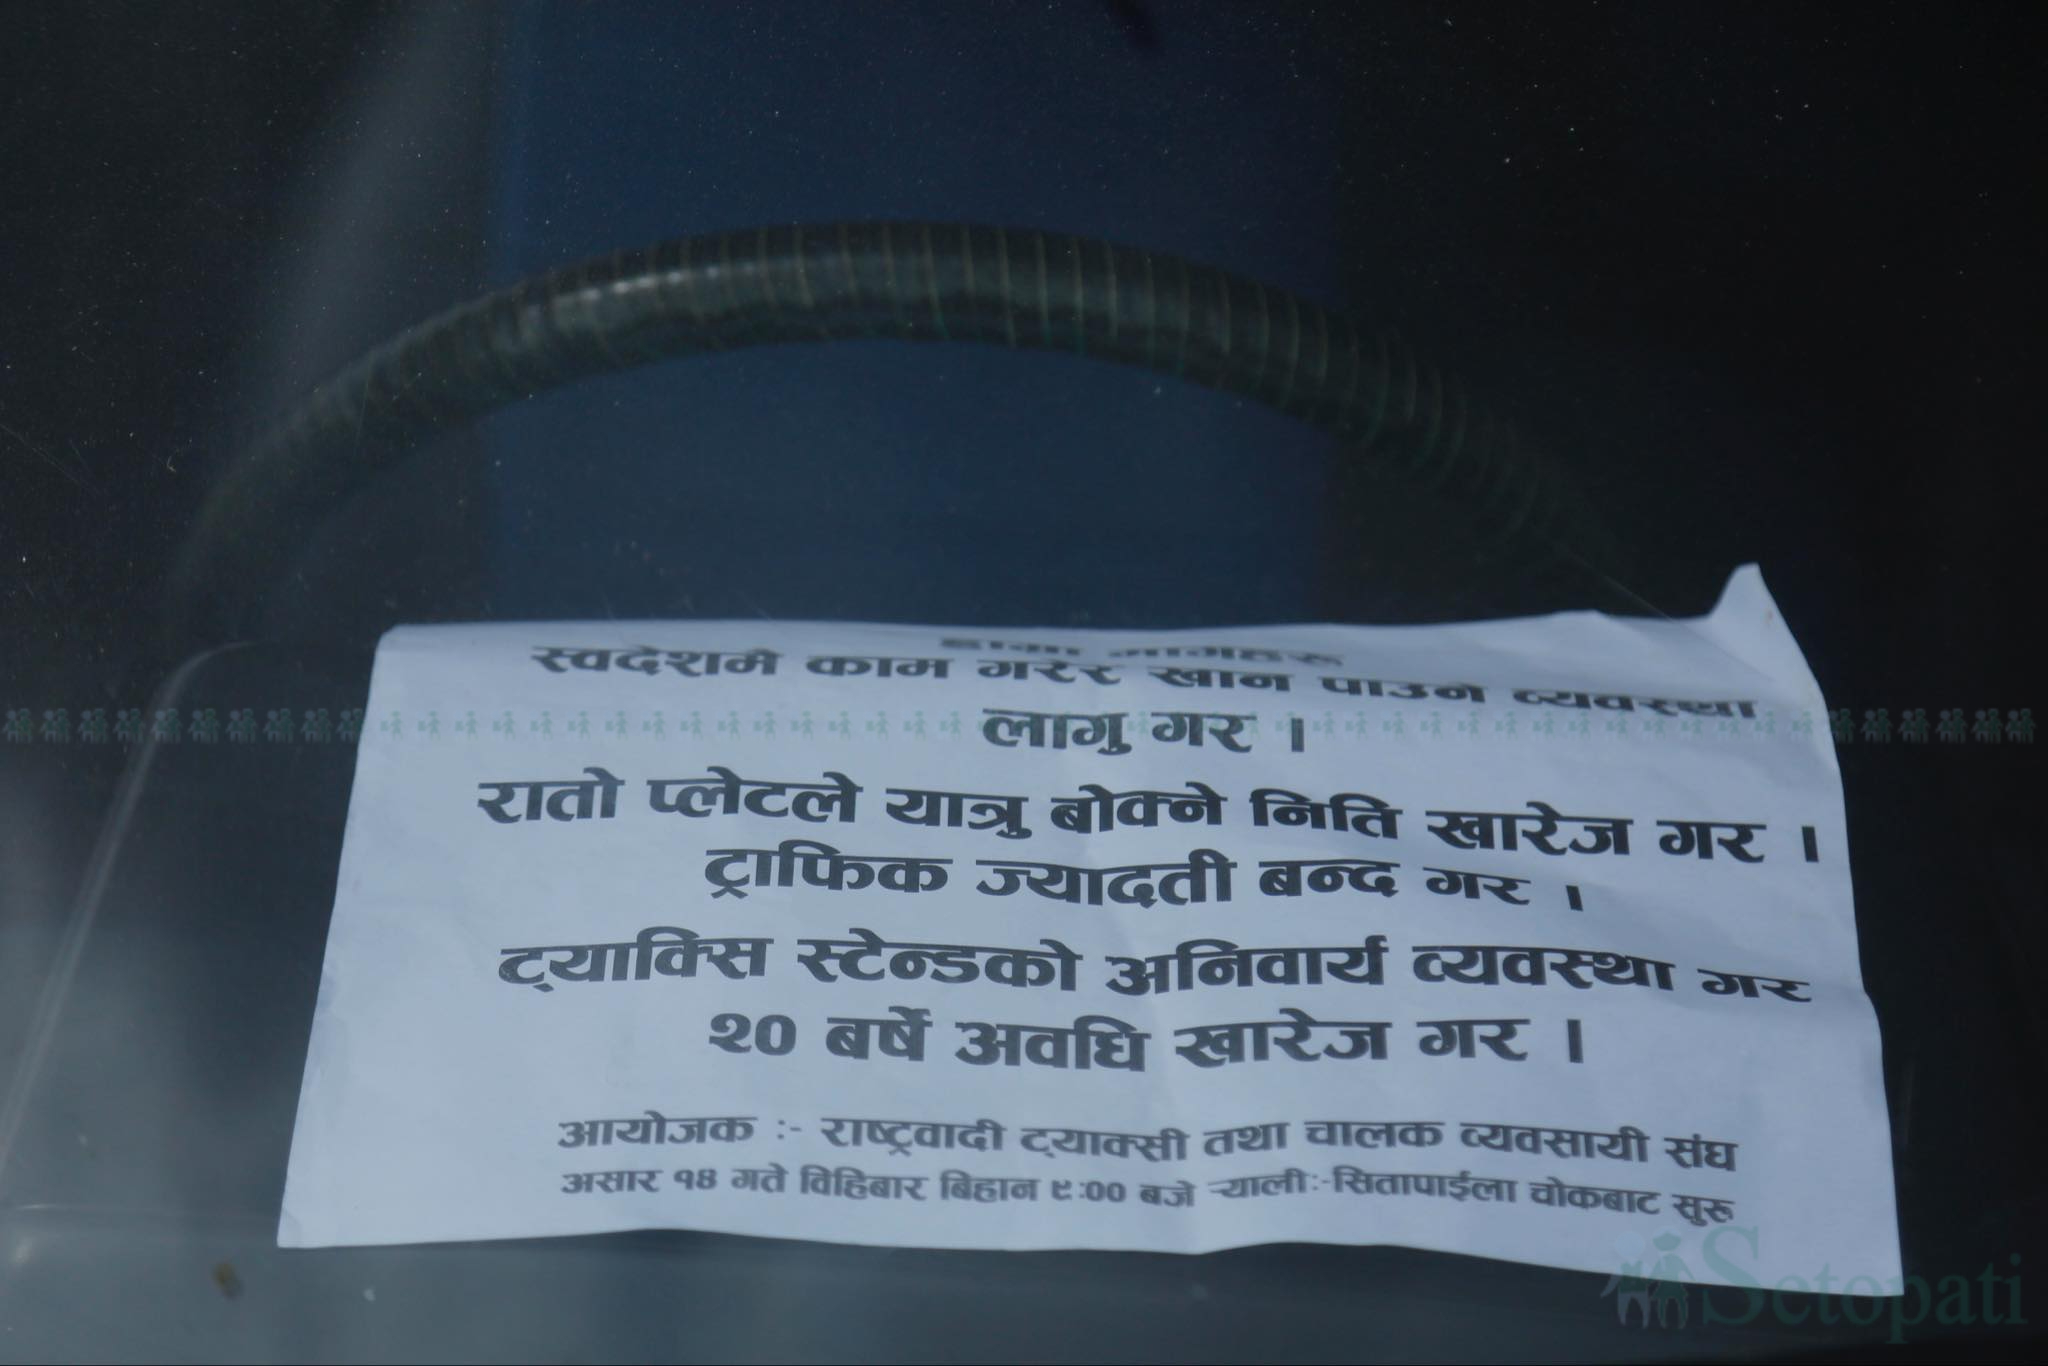 हाम्रा मागहरू
स्वदेशमै काम गरेर खान पाउने व्यवस्था
लागु गर ।
रातो प्लेटले यात्रु बोक्ने निति खारेज गर ।
ट्राफिक ज्यादती बन्द गर ।
ट्याक्सि स्टेन्डको अनिवार्य व्यवस्था गर
२० बर्षे अवधि खारेज गर ।
आयोजक :- राष्ट्रवादी ट्याक्सी तथा चालक व्यवसायी संघ
असार १४ गते विहिबार बिहान ९:०० बजे र्‍याली:-सितापाईला चोकबाट सुरू
Setopati